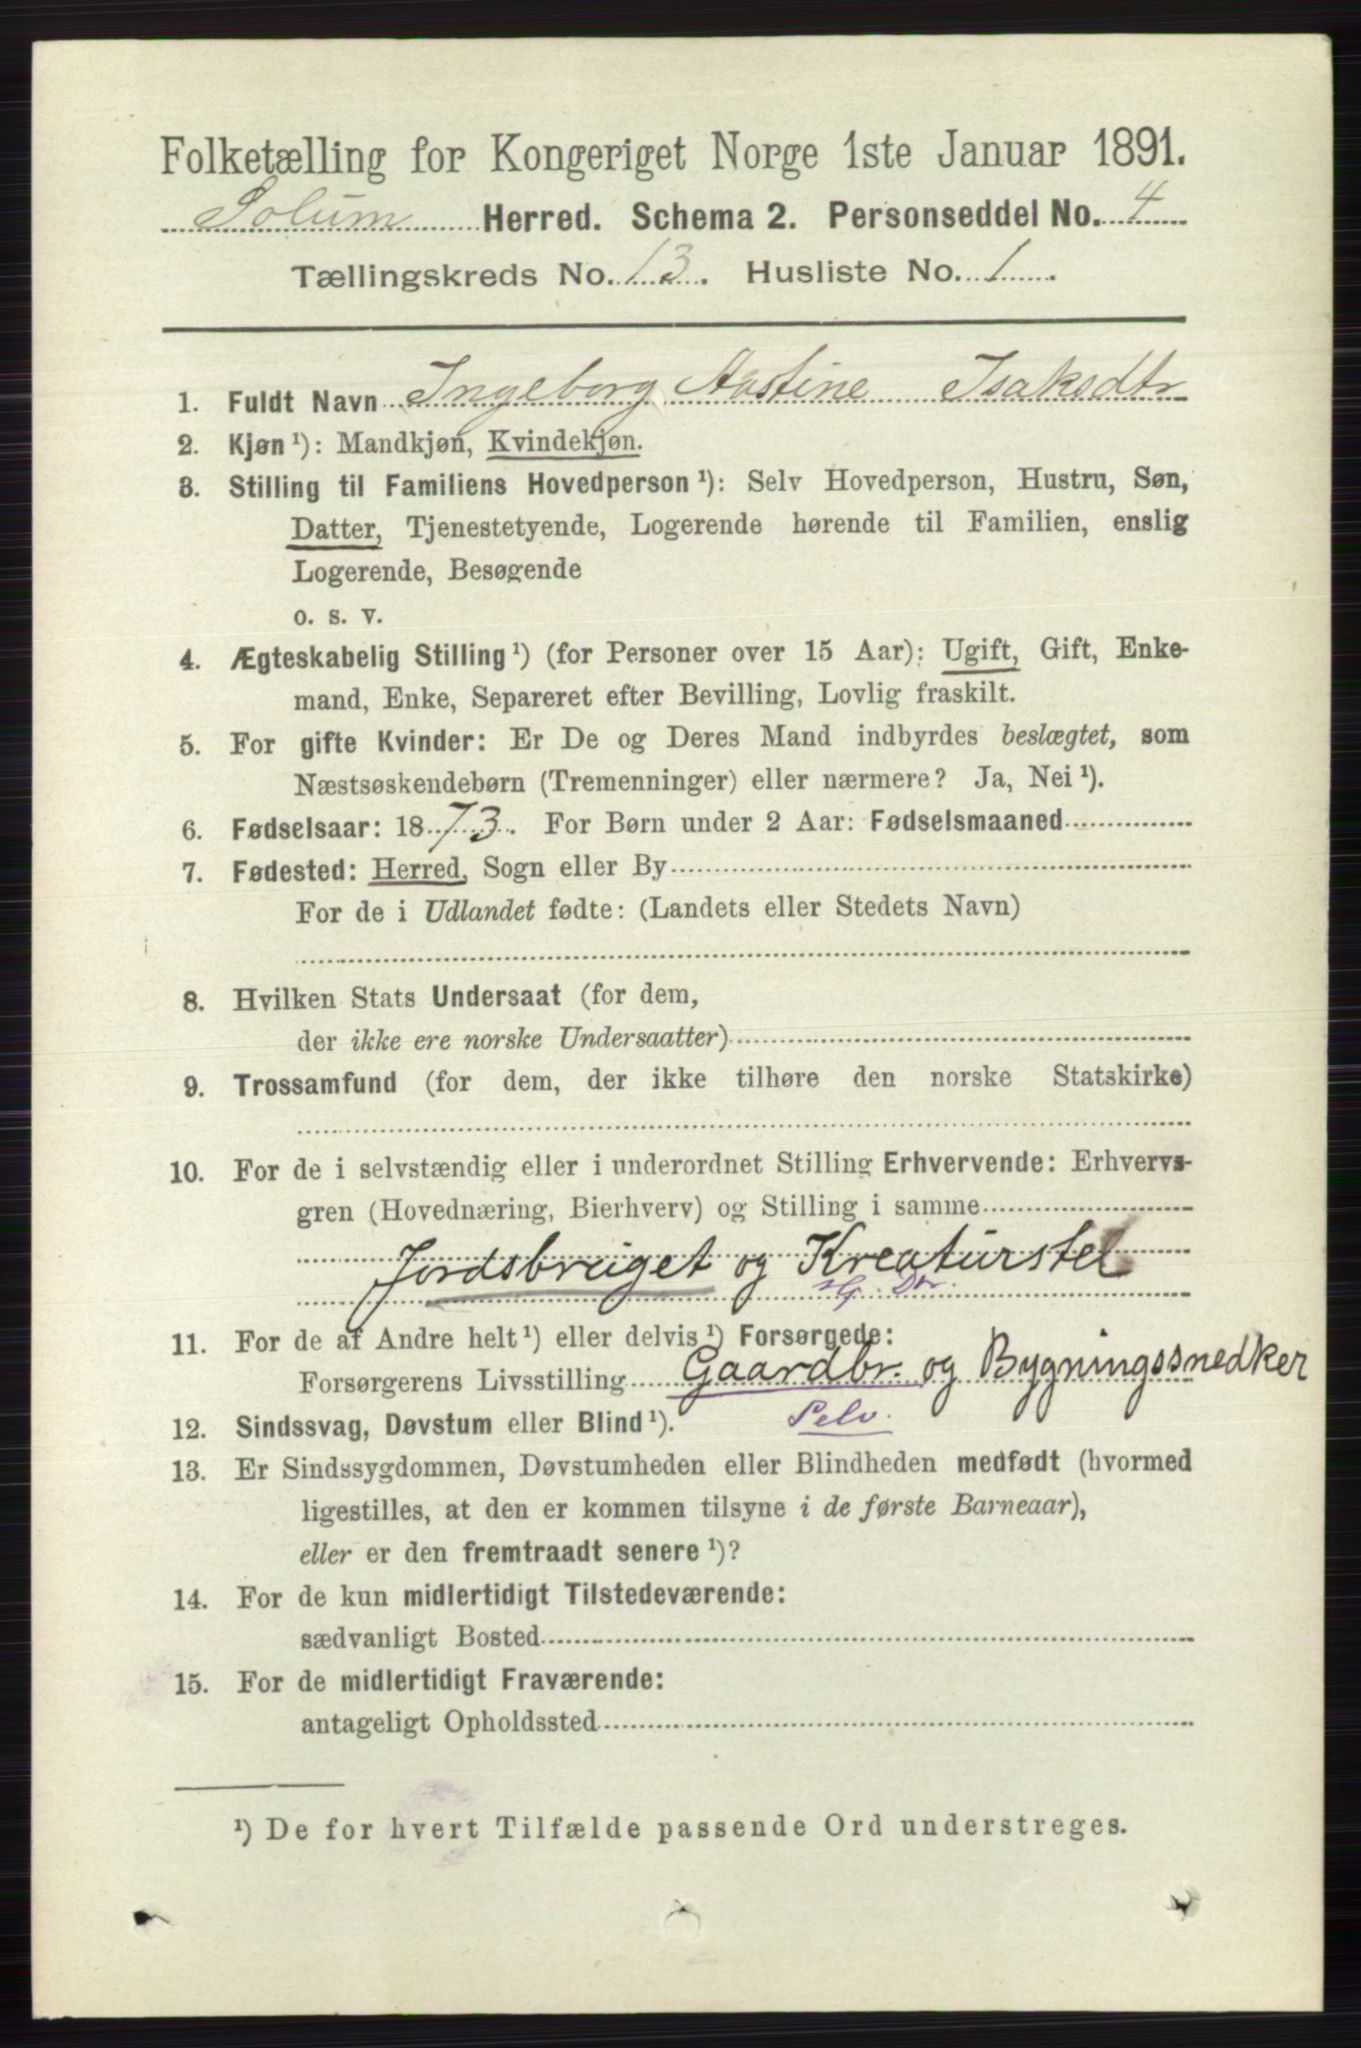 Folketælling for Kongeriget Norge 1ste Januar 1891.
Solum Herred. Schema 2. Personseddel No. 4
Tællingskreds No. 13. Husliste No. 1.
1. Fuldt Navn Ingeborg Aastine Isaksdtr
2. Kjøn ¹): Mandkjøn, Kvindekjøn.
3. Stilling til Familiens Hovedperson ¹): Selv Hovedperson, Hustru, Søn,
Datter, Tjenestetyende, Logerende hørende til Familien, enslig
Logerende, Besøgende
o. s. v.
4. Ægteskabelig Stilling ¹) (for Personer over 15 Aar): Ugift, Gift, Enke-
mand, Enke, Separeret efter Bevilling, Lovlig fraskilt.
5. For gifte Kvinder: Er De og Deres Mand indbyrdes beslægtet, som
Næstsøskendebørn (Tremenninger) eller nærmere? Ja, Nei ¹).
6. Fødselsaar: 1873. For Børn under 2 Aar: Fødselsmaaned
7. Fødested: Herred, Sogn eller By
For de i Udlandet fødte: (Landets eller Stedets Navn)
8. Hvilken Stats Undersaat (for dem,
der ikke ere norske Undersaatter)
9. Trossamfund (for dem, der ikke tilhøre den norske Statskirke)
10. For de i selvstændig eller i underordnet Stilling Erhvervende: Erhvervs-
gren (Hovednæring, Bierhverv) og Stilling i samme
Jordsbruget og Kreaturstel
G. Dtr.
11. For de af Andre helt ¹) eller delvis ¹) Forsørgede:
Forsørgerens Livsstilling Gaardbr. og Bygningssnedker
Selv.
12. Sindssvag, Døvstum eller Blind ¹).
13. Er Sindssygdommen, Døvstumheden eller Blindheden medfødt (hvormed
ligestilles, at den er kommen tilsyne i de første Barneaar),
eller er den fremtraadt senere ¹)?
14. For de kun midlertidigt Tilstedeværende:
sædvanligt Bosted
15. For de midlertidigt Fraværende:
antageligt Opholdssted
¹) De for hvert Tilfælde passende Ord understreges.